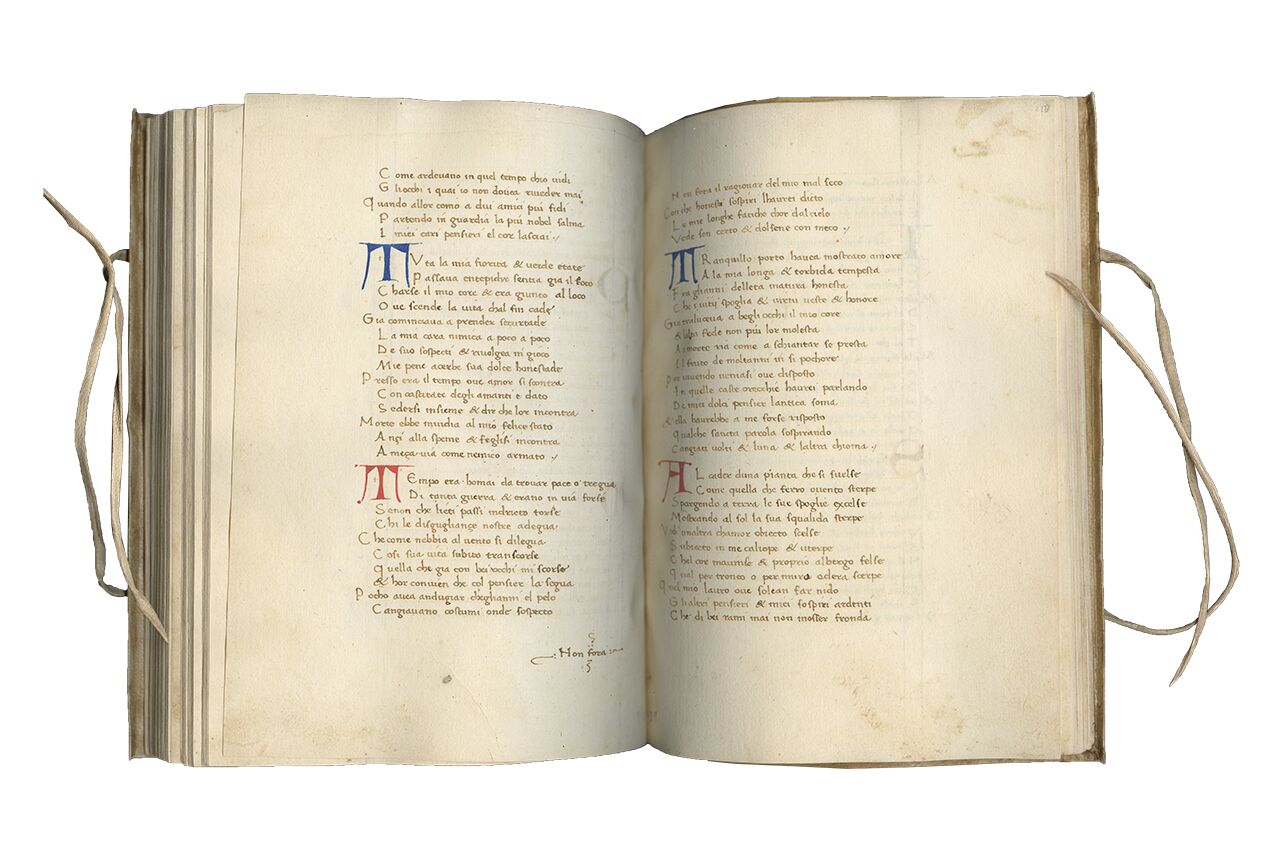 Come ardevano in quel tempo chio vidi
Gliocchi i quai io non dovea riveder mai
Quando allor como a dui amici piu fidi
Partendo in guardia la piu nobel salma
I miei cari pensieri el cor lasciai ./
TVta la mia fiorita & verde etate
Passava entepidir sentia gia il foco
Charse il mio core & era giunto al loco
Ove scende la vita chal fin cade
Gia cominciava a prender securtade
La mia cara nimica a poco a poco
De suo sospecti & rivolgea in gioco
Mie pene acerbe sua dolce honestade
Presso era il tempo ove amor si scontra
Con castitate degli amanti e dato
Sedersi insieme & dir che lor incontra
Morte ebbe invidia al mio felice stato
Anzi alla speme & feglisi incontra
A meza via come nemico armato ./
TEmpo era homai da trovar pace o tregua
Di tanta guerra & erano in via forse
Senon che lieti passi indrieto torse
Chi le disguglianze nostre adegua
Che come nebbia al vento si dilegua
Cosi sua vita subito transcorse
Quella che gia con bei occhi mi scorse
& hor convien che col pensier la segua
Pocho avea andugiar cheglianni el pelo
Cangiavano costumi onde sospecto
.: Non fora :.
118
Non fora il ragionar del mio mal seco
Con che honesti sospiri lhaurei dicto
Le mie longhe fatiche chor dal cielo
Vede son certo & dolsene con meco ./
TRanquillo porto havea mostrato amore
A la mia longa & torbida tempesta
Fra glianni delleta matura honesta
Che i vitij spoglia & virtu veste & honore
Gia traluceva a begli occhi il mio core
& lalta fede non piu lor molesta
Ai morte ria come a schiantar se presta
Il fruto de moltanni in si poch ore
Pur vivendo veniasi ove disposto
In quelle caste orecchie haurei parlando
De miei dolci pensier lantica soma
& ella haurebbe a me forse risposto
Qualche sancta parola sospirando
Cangiati volti & luna & laltra chioma ./
AL cader duna pianta che si svelse
Come quella che ferro o vento sterpe
Spargendo a terra le sue spoglie excelse
Mostrando al sol la sua squalida sterpe
Vidi unaltra chamor obiecto scelse
Subiecto in me caliope & uterpe
Chel cor mavinse & proprio albergo felse
Qual per tronco o per muro edera serpe
Quel mio lauro ove solean far nido
Gli altri pensieri & miei sospiri ardenti
Che di bei rami mai non mosser fronda